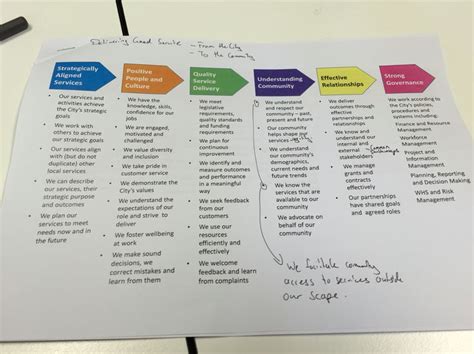 Delivering Good Service
- From the City
- To the Community
Strategically
Aligned
Services
• Our services and
activities achieve
the City's strategic
goals
• We work with
others to achieve
our strategic goals
• Our services align
with (but do not
duplicate) other
local services
• We can describe
our services, their
strategic purpose
and outcomes
• We plan our
services to meet
needs now and in
the future
Positive
People and
Culture
• We have the
knowledge, skills,
confidence for our
jobs
• We are engaged,
motivated and
challenged
• We value diversity
and inclusion
• We take pride in
customer service
• We demonstrate the
City's Values
• We understand the
expectations of our
role and strive to
deliver
• We foster wellbeing
at work
• We make sound
decisions, we
correct mistakes and
learn from them
Quality
Service
Delivery
• We meet
legislative
requirements,
quality standards
and funding
requirements
• We plan for
continuous
improvement
• We identify and
measure outcomes
and performance
in a meaningful
way
• We seek feedback
from our
customers
• We use our
resources
efficiently and
effectively
• We welcome
feedback and learn
from complaints
Understanding
Community
• We understand
and respect our
community – past,
present and
future
• Our community
helps shape our
services
• We understand
our community's
demographics,
current needs and
future trends
• We know the
services that are
available to our
community
• We advocate on
behalf of our
community
We facilitate community
access to services outside
our scope.
Effective
Relationships
• We deliver
outcomes through
effective
partnerships and
relationships
• We know and
understand our
internal and
external
stakeholders
• We manage
grants and
contracts
effectively
• Our partnerships
have shared goals
and agreed roles
Strong
Governance
We work according to
the City's policies,
processes,
procedures and
systems including:
• Finance and Resource
Management
• Workforce
Management
• Project and
Information
Management
• Planning, Reporting
and Decision Making
• WHS and Risk
Management